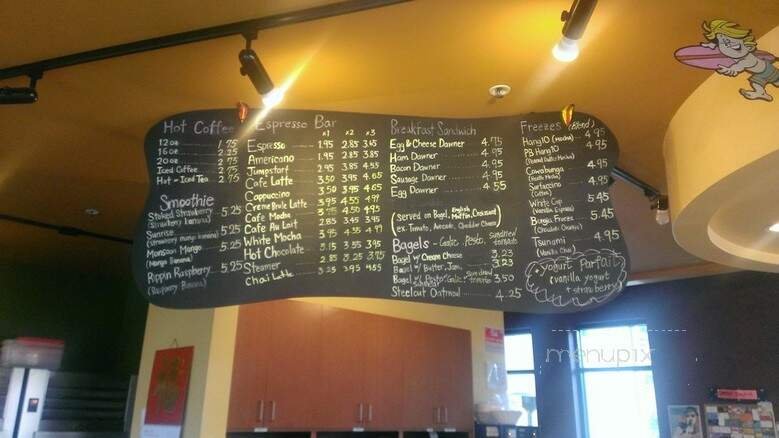 Hot Coffee
12 oz 1.75
16 oz 2.25
20 oz 2.75
Iced Coffee 2.75
Hot - Iced Tea 2.75
Smoothie
Stoked Strawberry 5.25
(Strawberry Banana)
Sunrise 5.25
(Strawberry mango banana)
Monsoon Mango 5.25
(Mango Banana)
Rippin Raspberry 5.25
(Raspberry Banana)
Espresso Bar
x1 x2 x3
Espresso 1.95 2.85 3.45
Americano 1.95 2.85 3.85
Jumpstart 2.95 3.85 4.55
Cafe Latte 3.50 3.95 4.65
Cappuccino 3.50 3.95 4.65
Creme Brule Latte 3.95 4.55 4.99
Cafe Mocha 4.50 4.95
Cafe Au Lait 2.85 3.45 3.95
White Mocha 3.95 4.55 4.99
Hot Chocolate 3.15 3.55 3.95
Steamer 2.85 3.25 3.95
Chai Latte 3.25 3.95 4.85
Breakfast Sandwich
Egg & Cheese Dawner 4.75
Ham Dawner 4.95
Bacon Dawner 4.95
Sausage Dawner 4.95
Egg Dawner 4.55
(served on Bagel, English Muffin, Croissant)
ex. Tomato, Avocado, Cheddar Cheese)
Bagels - Garlic Pesto, sundried tomato
Bagel w/ Cream Cheese 3.23
Bagel w/ Butter, Jam 3.23
Bagel w/ Pesto, Garlic, sundried tomato 3.50
Steelcut Oatmeal 4.25
Freezes (Blend)
Hang 10 (mocha) 4.95
PB Hang 10 4.95
(Peanut Butter Mocha)
Cowabunga 4.95
Surfaccino 4.95
(Coffee)
White Cap 5.45
(Vanilla Espresso)
Barrys Freezes 5.45
(Chocolate Orange)
Tsunami 4.95
(Vanilla Chai)
Yogurt Parfait
(vanilla yogurt
+ strawberry
menupix